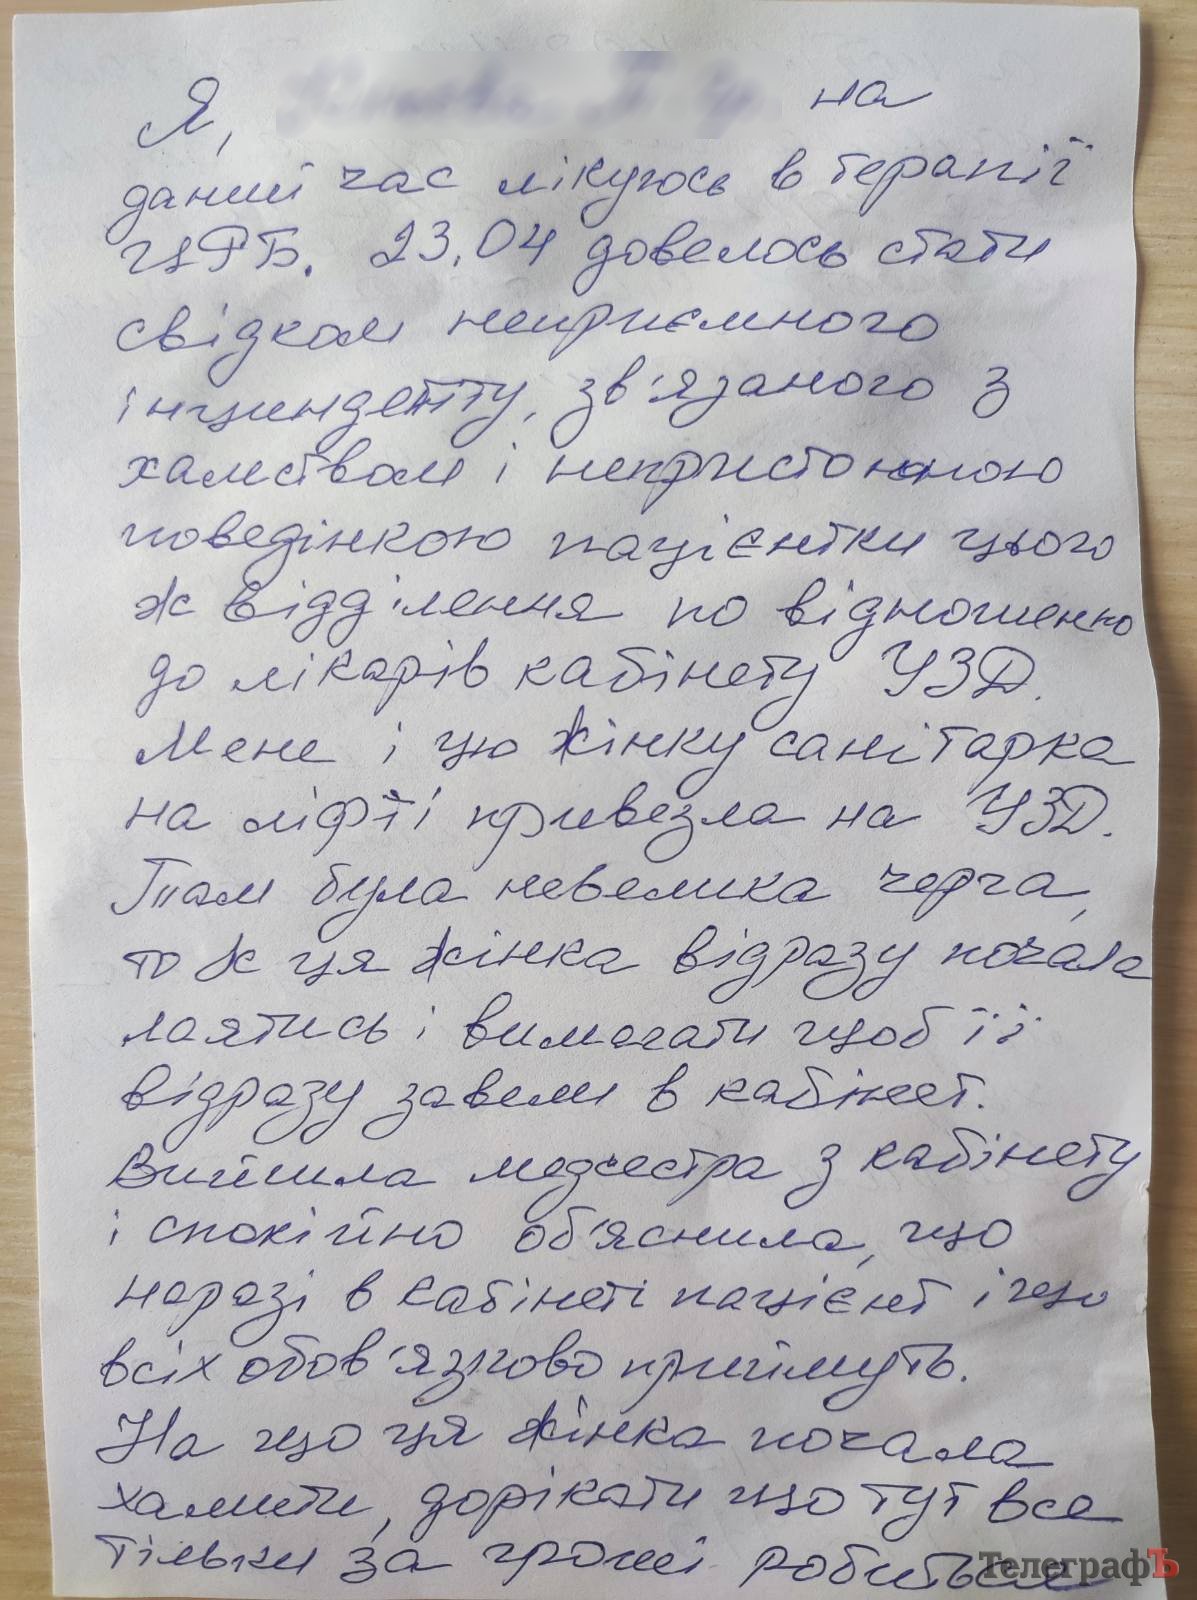 Я, на
даний час лікуюсь в терапії
ЦРБ. 23.04 довелось стати
свідком неприємного
інцинденту, зв'язаного з
хамством і непристойною
поведінкою пацієнтки цього
ж відділення по відношенню
до лікарів кабінету УЗД.
Мене і цю жінку санітарка
на ліфті привезла на УЗД.
Там була невелика черга,
то ж ця жінка відразу почала
лаятись і вимагати щоб її
відразу завели в кабінет.
Вийшла медсестра з кабінету
і спокійно об'яснила, що
наразі в кабінеті пацієнт і що
всіх обов'язково приймуть.
На що ця жінка почала
хамити, дорікати що тут все
тільки за гроші робиться
ТелеграфЪ